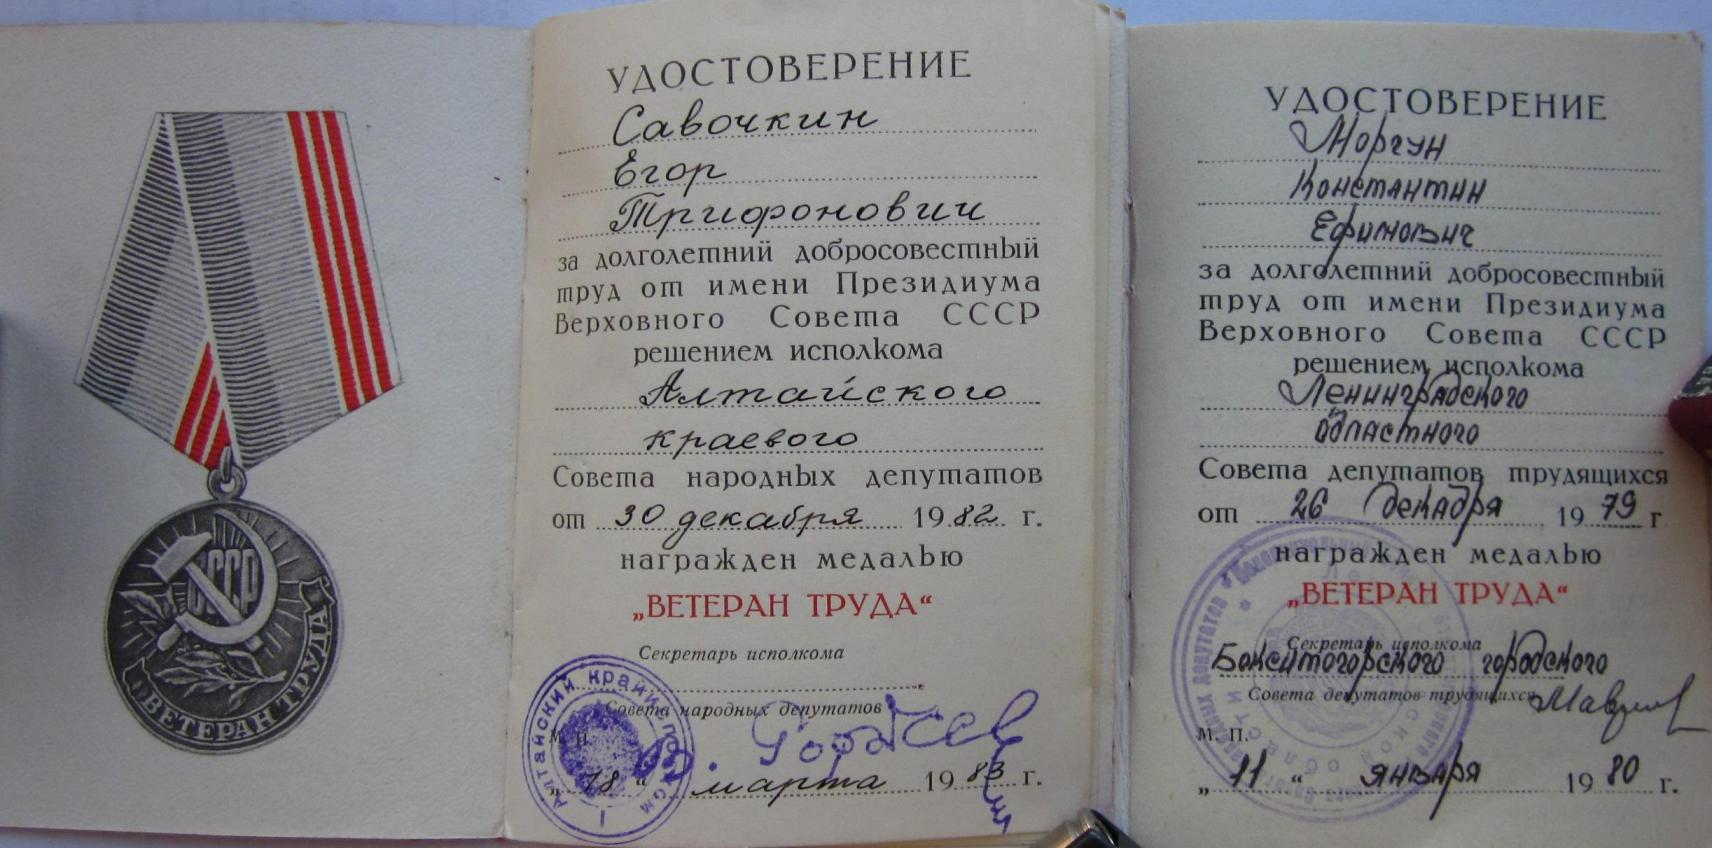 СССР
ВЕТЕРАН ТРУДА
УДОСТОВЕРЕНИЕ
Савочкин
Егор
Трифонович
за долголетний добросовестный
труд от имени Президиума
Верховного Совета СССР
решением исполкома
Алтайского
краевого
Совета народных депутатов
от 30 декабря 1982 г.
награжден медалью
„ВЕТЕРАН ТРУДА“
Секретарь исполкома
Совета народных депутатов
М. П.
Алтайский крайисполком
„18“ марта 1983 г.
УДОСТОВЕРЕНИЕ
Моргун
Константин
Ефимович
за долголетний добросовестный
труд от имени Президиума
Верховного Совета СССР
решением исполкома
Ленинградского
областного
Совета депутатов трудящихся
от 26 декабря 1979 г
награжден медалью
„ВЕТЕРАН ТРУДА“
Секретарь исполкома
Бокситогорского городского
Совета депутатов трудящихся
М. П.
„11“ января 1980 г.